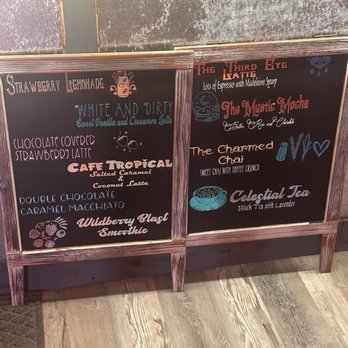 Strawberry Lemonade
White and Dirty
Sweet Vanilla and Cinnamon Latte
Chocolate Covered
Strawberry Latte
Cafe Tropical
Salted Caramel &
Coconut Latte
Double Chocolate
Caramel Macchiato
Wildberry Blast
Smoothie
The Third Bye
Latte
Lots of Espresso with Madeleine Syrup
The Mystic Mocha
The Charmed
Chai
Sweet Chai with Toffee Crunch
Celestial Tea
Black Tea with Lavender